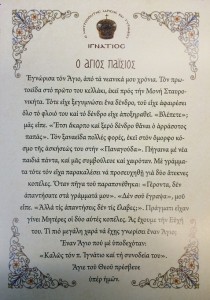 ΙΓΝΑΤΙΟΣ
Ο ΑΓΙΟΣ ΠΑΪΣΙΟΣ
Ἐγνώρισα τὸν Ἅγιο, ἀπὸ τὰ νεανικά μου χρόνια. Τὸν πρω-
τοεῖδα στὸ πρῶτο του κελλάκι, ἐκεῖ πρὸς τὴν Μονὴ Σταυρο-
νικήτα. Τότε εἶχε ξεγυμνώσει ἕνα δένδρο, τοῦ εἶχε ἀφαιρέσει
ὅλο τὸ φλοιό του καὶ τὸ δένδρο εἶχε ἀποξηραθεῖ. «Βλέπετε»;
μᾶς εἶπε. «Ἔτσι ἄκαρπο καὶ ξερὸ δένδρο θἆναι ὁ ἀρράστος
παπάς». Τὸν ξαναεῖδα πολλὲς φορές, ἐκεῖ στὸν ὄμορφο κόσμο
τῆς ἀσκήσεώς του στὴν «Παναγούδα». Πήγαινα μὲ νέα
παιδιὰ πάντα, καὶ μᾶς συμβούλευε καὶ χαιρόταν. Μὲ γράμμα-
τα τότε τὸν εἶχα παρακαλέσει νὰ προσευχηθῆ γιὰ δύο ἄπονες
κοπέλες. Ὅταν πῆγα τοῦ παραπονέθηκα: «Γέροντα, δὲν
ἀπαντήσατε στὰ γράμματά μου». «Δὲν σοῦ ἔγραψα», μοῦ
εἶπε. «Ἀλλὰ τὶς ἀπαντήσεις δὲν τὶς ἔλαβες;». Πράγματι εἶχαν
γίνει Μητέρες οἱ δύο αὐτὲς κοπέλες. Ἂς ἔχουμε τὴν Εὐχή
του. Τί πιὸ μεγάλη χαρὰ νὰ ἔχης γνωρίσει ἕναν Ἅγιο;
Ἕναν Ἅγιο ποὺ μὲ ὑποδεχόταν:
«Καλῶς τὸν π. Ἰγνάτιο καὶ τὴ συνοδεία του».
Ἅγιε τοῦ Θεοῦ πρέσβευε
ὑπὲρ ἡμῶν.